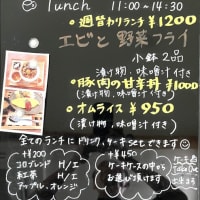 lunch 11:00~14:30
●週替わりランチ ¥1200
エビと野菜フライ
小鉢2品
漬け物、味噌汁付き
●豚肉の甘辛丼 ¥1000
(漬け物、味噌汁付き)
●オムライス ¥950
(漬け物、味噌汁付き)
全てのランチにドリンク、ケーキsetできます
+¥200
コロブレンド H/I
紅茶 H/I
アップル、オレンジ
+¥450
ケーキケースの中から
お選び頂けます